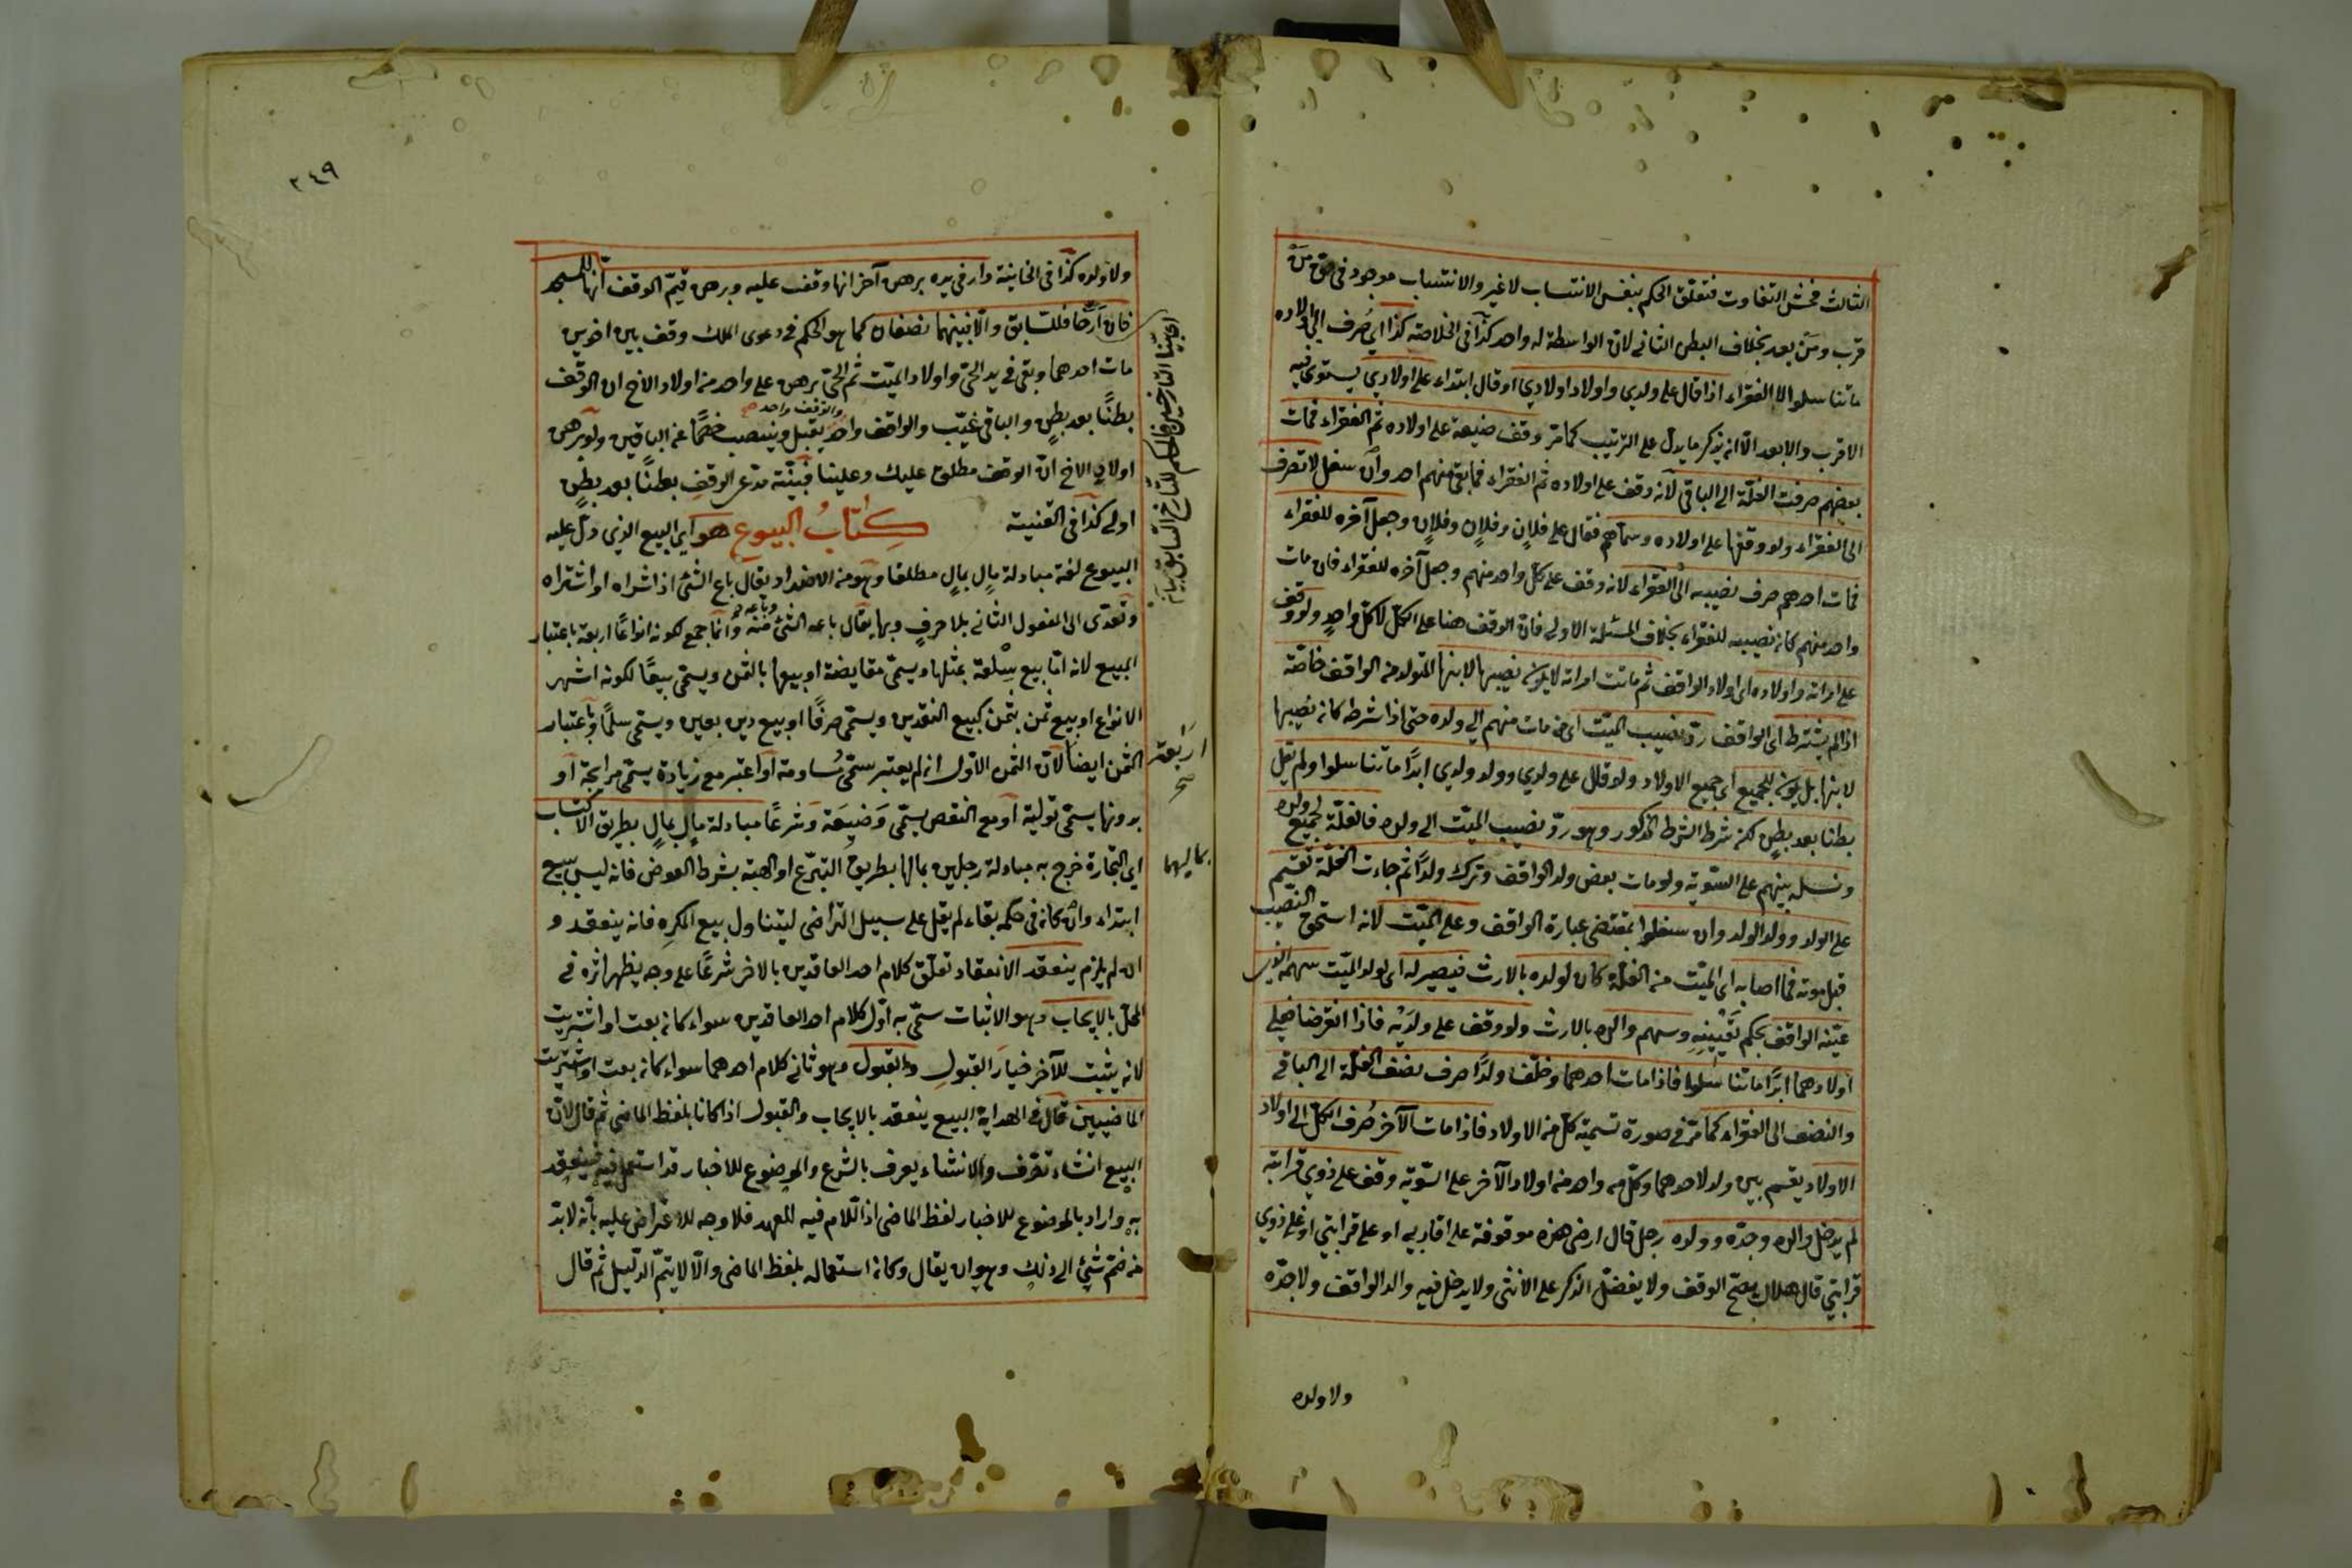 الثالث فحش التفاوت فتعلق الحكم بنفس الانتساب لا غير والانتساب موجود في حق من
قرب ومن بعد بخلاف البطن الثاني لان الواسطة له واحد كذا في الخلاصة كذا اي صرف الى اولاده
ما تناسلوا لا الفقراء اذا قال على ولدي واولاد اولادي او قال ابتداء على اولادي يستوي فيه
الاقرب والابعد الا ان يذكر ما يدل على الترتيب كما مر وقف ضيعة على اولاده ثم الفقراء فمات
بعضهم صرفت الغلة الى الباقي لانه وقف على اولاده ثم الفقراء فما بقي منهم احد وان سفل لا تصرف
الى الفقراء ولو وقفها على اولاده وسماهم فقال على فلان وفلان وفلان وجعل آخره للفقراء
فمات احدهم صرف نصيبه الى الفقراء لانه وقف على كل واحد منهم وجعل آخره للفقراء فان مات
واحد منهم كان نصيبه للفقراء بخلاف المسئلة الاولى فان الوقف هنا على الكل لا كل واحد ولو وقف
على امرأته واولاده اى اولاد الواقف ثم ماتت امرأته لا يكون نصيبها لابنها المتولد من الواقف خاصة
اذا لم يشترط اى الواقف رد نصيب الميت اى من مات منهم الى ولده حتى اذا شرطه كان نصيبها
لابنها بل يكون للجميع اى جميع الاولاد ولو قال على ولدي وولد ولدي ابدا ما تناسلوا ولم يقل
بطنا بعد بطن لكن شرط الشرط المذكور وهو رد نصيب الميت الى ولده فالغلة لجميع ولده
ونسله بينهم على السوية ولو مات بعض ولد الواقف وترك ولدا ثم جاءت الغلة تقسم
على الولد وولد الولد وان سفلوا بمقتضى عبارة الواقف وعلى الميت لانه استحق النصيب
قبل موته فما اصابه اى الميت من الغلة كان لولده بالارث فيصير له اى لولد الميت سهمه الذي
عينه الواقف بحكم تعيينه وسهم والده بالارث ولو وقف على ولديه فاذا انقرضا فعلى
اولادهما ابدا ما تناسلوا فاذا مات احدهما وخلف ولدا صرف نصف الغلة الى الباقي
والنصف الى الفقراء كما مر في صورة تسمية كل من الاولاد فاذا مات الآخر صرف الكل الى اولاد
الاولاد يقسم بين ولد لاحدهما وكل من واحد من اولاد الآخر على السوية وقف على ذوي قرابته
لم يدخل والده وجده وولده رجل قال ارضي هذه موقوفة على اقاربي او على قرابتي او على ذوي
قرابتي قال هلال يصح الوقف ولا يفضل الذكر على الانثى ولا يدخل فيه والد الواقف ولا جده
ولا ولده
٢٤٩
ولا ولده كذا في الخانية دار في يده برهن آخر انها وقف عليه وبرهن قيم الوقف انها للمسجد
فان ارخا فللسابق والا فبينهما نصفان كما هو الحكم في دعوى الملك وقف بين اخوين
مات احدهما وبقي في يد الحي واولاد الميت ثم الحي برهن على واحد من اولاد الاخ ان الوقف
بطنا بعد بطن والباقي غيب والواقف واحد يقبل وينتصب خصما عن الباقين ولو برهن
والوقف واحد صح
اولاد الاخ ان الوقف مطلق عليك وعلينا فبينة مدعي الوقف بطنا بعد بطن
اولى كذا في القنية كتاب البيوع هو اي البيع الذي دل عليه
البيوع لغة مبادلة مال بمال مطلقا وهو من الاضداد يقال باع الشئ اذا شراه او اشتراه
وتعدى الى المفعول الثاني بلا حرف وبها يقال باعه الشئ وباعه منه وانما جمع لكونه انواعا اربعة باعتبار
المبيع لانه اما بيع سلعة بمثلها ويسمى مقايضة او بيعها بالثمن ويسمى بيعا لكونه اشهر
الانواع او بيع ثمن بثمن كبيع النقدين ويسمى صرفا او بيع دين بعين ويسمى سلما وباعتبار
الثمن ايضا لان الثمن الاول ان لم يعتبر سمى مساومة او اعتبر مع زيادة يسمى مرابحة او
بدونها يسمى تولية او مع النقص يسمى وضيعة وشرعا مبادلة مال بمال بطريق الاكتساب
اي التجارة خرج به مبادلة رجلين بمالهما بطريق التبرع او الهبة بشرط العوض فانه ليس ببيع
ابتداء وان كان في حكمه بقاء لم يقل على سبيل التراضي ليتناول بيع المكره فانه ينعقد و
ان لم يلزم ينعقد الانعقاد تعلق كلام احد العاقدين بالاخر شرعا على وجه يظهر اثره في
المحل بالايجاب وهو الاثبات سمى به اول كلام احد العاقدين سواء كان بعت او اشتريت
لانه يثبت للآخر خيار القبول والقبول وهو ثاني كلام احدهما سواء كان بعت او اشتريت
الماضيين قال في الهداية البيع ينعقد بالايجاب والقبول اذا كانا بلفظ الماضي ثم قال لان
البيع انشاء تصرف والانشاء يعرف بالشرع والموضوع للاخبار قد استعمل فيه فينعقد
به واراد بالموضوع للاخبار لفظ الماضي اذ اللام فيه للعهد فلا وجه للاعتراض عليه بانه لابد
من ضم شئ الى ذلك وهو ان يقال وكان استعماله بلفظ الماضي والا لا يتم الدليل ثم قال
فالحكم للتاريخ السابق
اربعة
صح
بماليهما